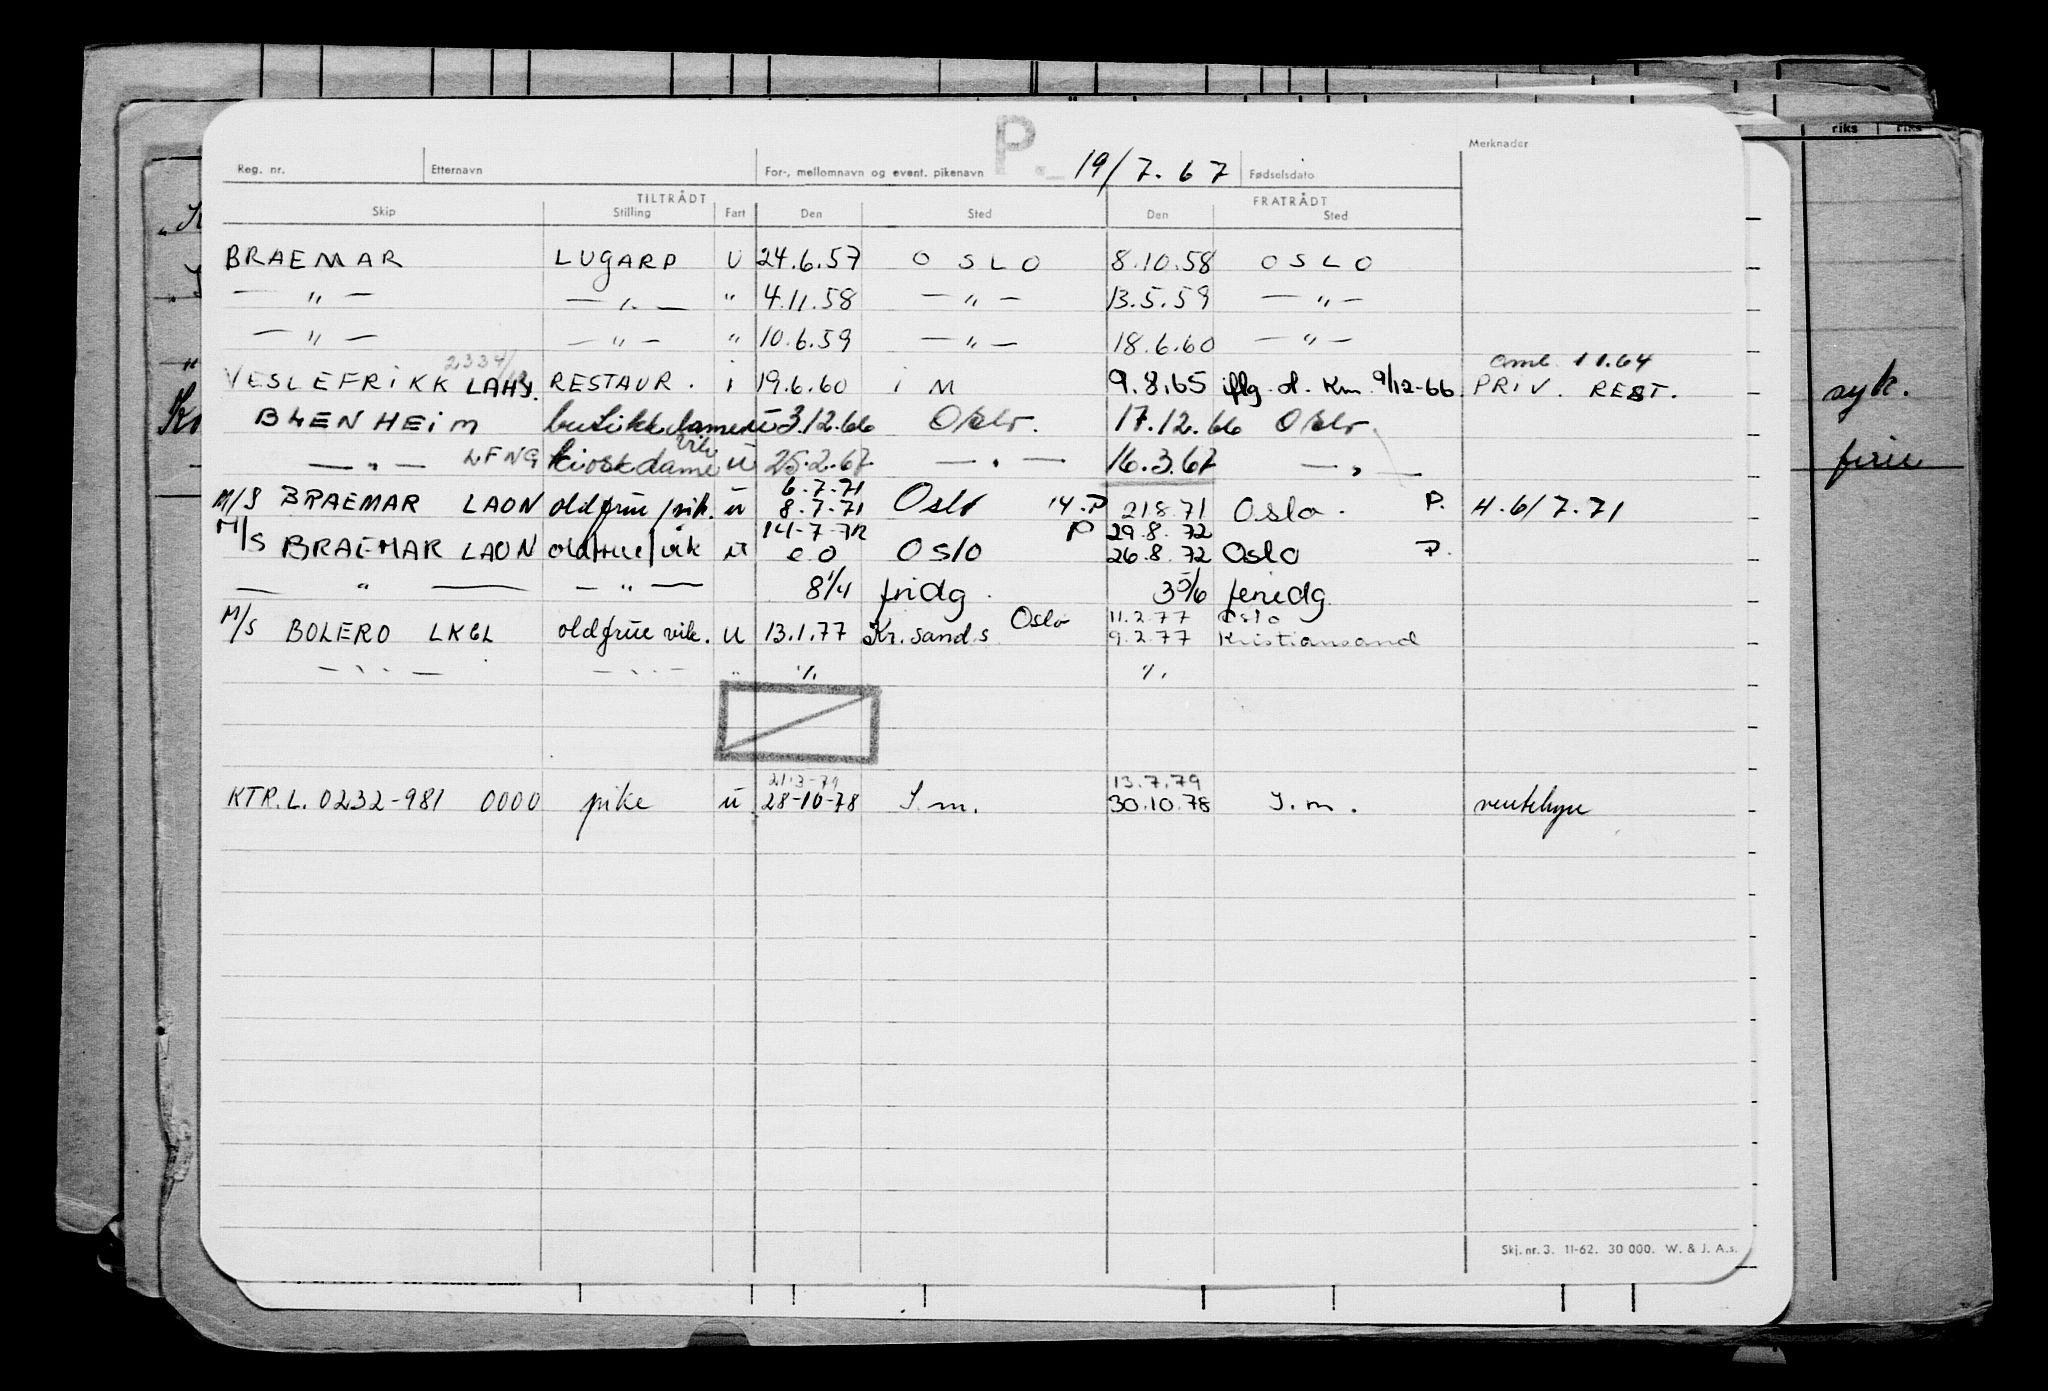 P.
Merknader
Reg. nr. Etternavn For-, mellomnavn og event. pikenavn 19/7.67 Fødselsdato
TILTRÅDT FRATRÅDT
Skip Stilling Fart Den Sted Den Sted
BRAEMAR LUGARP U 24.6.57 OSLO 8.10.58 OSLO
— " — — " — " 4.11.58 — " — 13.5.59 — " —
— " — — " — " 10.6.59 — " — 18.6.60 — " —
2334/ 1.1.64
VESLEFRIKK LAHY. RESTAUR. i 19.6.60 i M 9.8.65 iflg. d. Km. 9/12-66. PRIV. REST.
BLENHEIM butikkdame u 3.12.66 Oslo. 17.12.66 Oslo
vik
— " — LFNG kioskdame u 25.2.67 — " — 16.3.67 — " —
6.7.71
M/S BRAEMAR LAON oldfrue/vik. u 8.7.71 Oslo 14.P 21.8.71 Oslo. P. H.6/7.71
14-7-72 P 29.8.72
M/S BRAEMAR LAON oldfrue/vik u e.o Oslo 26.8.72 Oslo P.
— " — — " — 8 1/4 fridg. 3 5/6 feriedg.
Oslo 11.2.77 Oslo
M/S BOLERO LKGL oldfrue vik. u 13.1.77 Kr.sand.s. 9.2.77 Kristiansand
— " — — " — " %. %.
21.3-79 13.7.79
KTR.L. 0232-981 0000 pike u 28-10-78 I.m. 30.10.78 I.m. ventehyre
Skj. nr. 3. 11-62. 30 000. W. & J. A.s.
riks riks
syk.
ferie